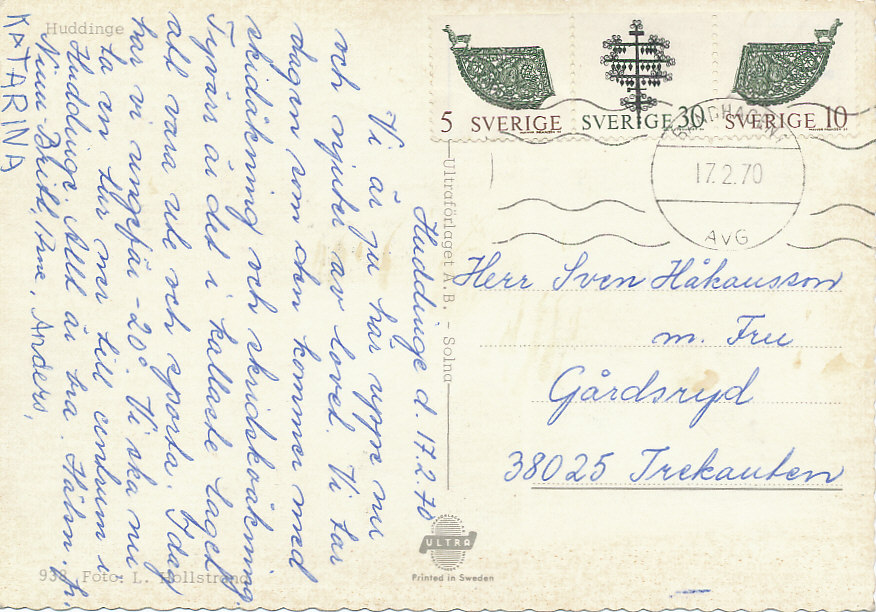 Huddinge
Huddinge d. 17.2.70
Vi är ju här uppe nu
och njuter av lovet. Vi tar
dagen som den kommer med
skidåkning och skridskoåkning.
Tyvärr är det i kallaste laget
att vara ute och sporta. Idag
har vi ungefär -20°. Vi ska nu
ta en tur ner till centrum i
Huddinge. Allt är bra. Hälsn. fr.
Britt, Arne, Anders,
KATARINA
938 Foto: L. Hollstrand
Ultraförlaget A.B. - Solna
ULTRA
Printed in Sweden
5 SVERIGE
SVERIGE 30
SVERIGE 10
17.2.70
AvG
Herr Sven Håkansson
m. Fru
Gårdsryd
38025 Trekanten